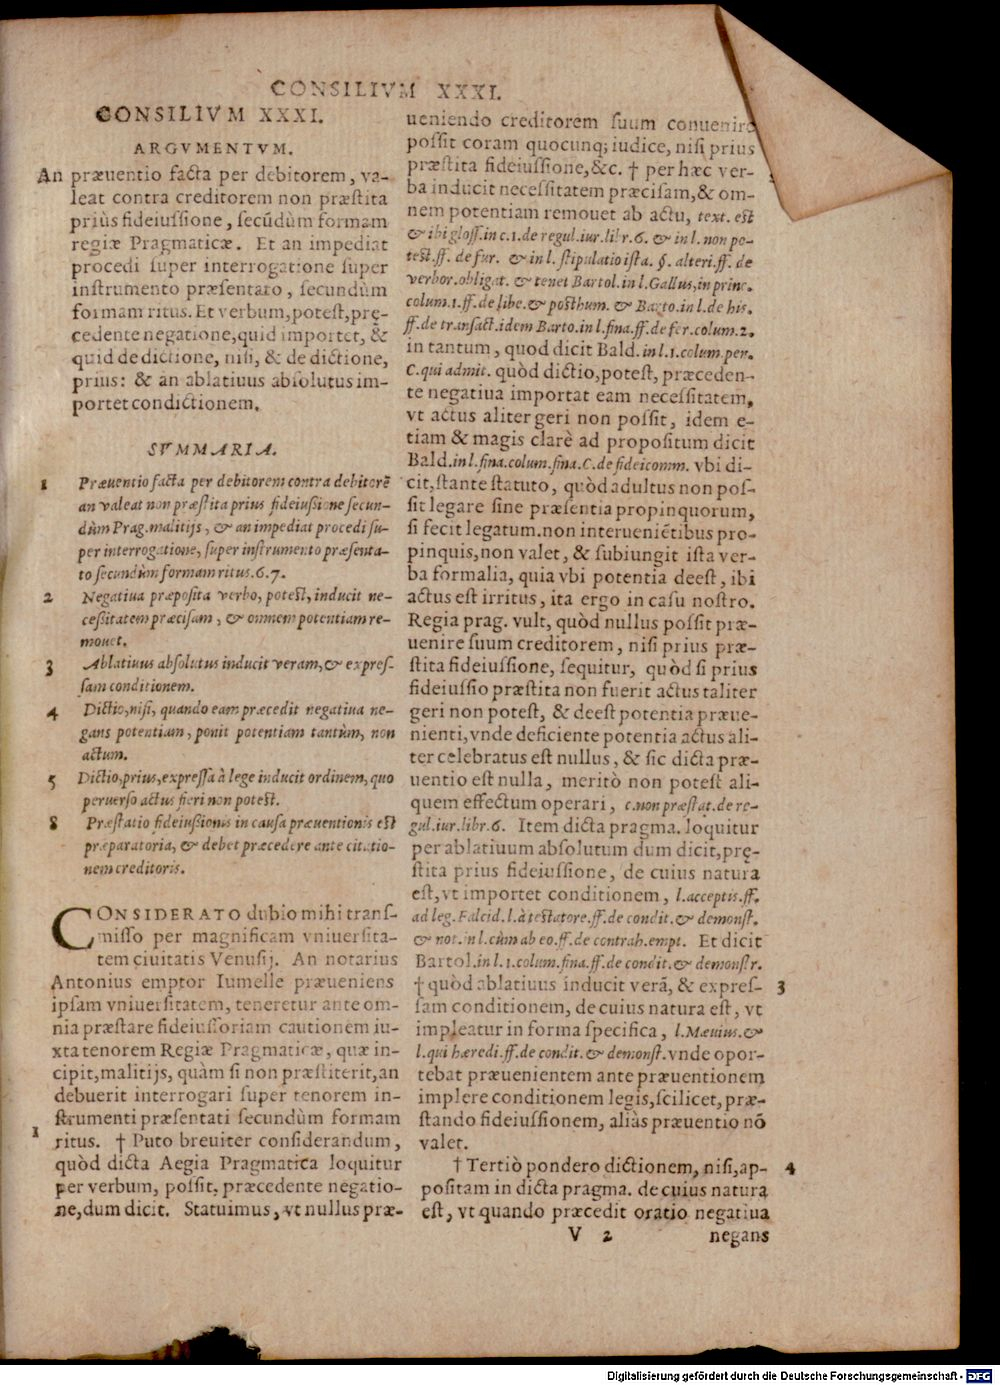 CONSILIVM XXXI.
CONSILIVM XXXI.
ARGVMENTVM.
An præuentio facta per debitorem, va-
leat contra creditorem non præstita
priùs fideiussione, secũdùm formam
regiæ Pragmaticæ. Et an impediat
procedi super interrogatione super
instrumento præsentato, secundùm
formam ritus. Et verbum, potest, prę-
cedente negatione, quid importet, &
quid de dictione, nisi, & de dictione,
prius: & an ablatiuus absolutus im-
portet condictionem.
SVMMARIA.
1 Præuentio facta per debitorem contra debitorẽ
an valeat non præstita prius fideiussione secun-
dùm Prag. malitijs, & an impediat procedi su-
per interrogatione, super instrumento præsenta-
to secundùm formam ritus. 6. 7.
2 Negatiua præposita verbo, potest, inducit ne-
cessitatem præcisam, & omnem potentiam re-
mouet.
3 Ablatiuus absolutus inducit veram, & expres-
sam conditionem.
4 Dictio, nisi, quando eam præcedit negatiua ne-
gans potentiam, ponit potentiam tantùm, non
actum.
5 Dictio, prius, expressa à lege inducit ordinem, quo
peruerso actus fieri non potest.
8 Præstatio fideiussionis in causa præuentionis est
præparatoria, & debet præcedere ante citatio-
nem creditoris.
CONSIDERATO dubio mihi trans-
misso per magnificam vniuersita-
tem ciuitatis Venusij. An notarius
Antonius emptor Iumelle præueniens
ipsam vniuersitatem, teneretur ante om-
nia præstare fideiussoriam cautionem iu-
xta tenorem Regiæ Pragmaticæ, quæ in-
cipit, malitijs, quàm si non præstiterit, an
debuerit interrogari super tenorem in-
strumenti præsentati secundùm formam
1 ritus. † Puto breuiter considerandum,
quòd dicta Aegia Pragmatica loquitur
per verbum, possit, præcedente negatio-
ne, dum dicit. Statuimus, vt nullus præ-
ueniendo creditorem suum conuenire
possit coram quocunq; iudice, nisi prius
præstita fideiussione, &c. † per hæc ver-
ba inducit necessitatem præcisam, & om-
nem potentiam remouet ab actu, text. est
& ibi gloss. in c. 1. de regul. iur. libr. 6. & in l. non po-
test. ff. de fur. & in l. stipulatio ista. §. alteri. ff. de
verbor. obligat. & tenet Bartol. in l. Gallus, in princ.
colum. 1. ff. de libe. & posthum. & Barto. in l. de his.
ff. de transact. idem Barto. in l. fina. ff. de fer. colum. 2.
in tantum, quod dicit Bald. in l. 1. colum. per.
C. qui admit. quòd dictio, potest, præceden-
te negatiua importat eam necessitatem,
vt actus aliter geri non possit, idem e-
tiam & magis clarè ad propositum dicit
Bald. in l. fina. colum. fina. C. de fideicomm. vbi di-
cit, stante statuto, quòd adultus non pos-
sit legare sine præsentia propinquorum,
si fecit legatum. non interueniẽtibus pro-
pinquis, non valet, & subiungit ista ver-
ba formalia, quia vbi potentia deest, ibi
actus est irritus, ita ergo in casu nostro.
Regia prag. vult, quòd nullus possit præ-
uenire suum creditorem, nisi prius præ-
stita fideiussione, sequitur, quòd si prius
fideiussio præstita non fuerit actus taliter
geri non potest, & deest potentia præue-
nienti, vnde deficiente potentia actus ali-
ter celebratus est nullus, & sic dicta præ-
uentio est nulla, meritò non potest ali-
quem effectum operari, c. non præstat. de re-
gul. iur. libr. 6. Item dicta pragma. loquitur
per ablatiuum absolutum dum dicit, prę-
stita prius fideiussione, de cuius natura
est, vt importet conditionem, l. acceptis. ff.
ad leg. Falcid. l. à testatore. ff. de condit. & demonst.
& not. in l. cùm ab eo. ff. de contrah. empt. Et dicit
Bartol. in l. 1. colum. fina. ff. de condit. & demonstr.
† quòd ablatiuus inducit verã, & expres- 3
sam conditionem, de cuius natura est, vt
impleatur in forma specifica, l. Mæuius. &
l. qui hæredi. ff. de condit. & demonst. vnde opor-
tebat præuenientem ante præuentionem
implere conditionem legis, scilicet, præ-
stando fideiussionem, aliàs præuentio nõ
valet.
† Tertiò pondero dictionem, nisi, ap- 4
positam in dicta pragma. de cuius natura
est, vt quando præcedit oratio negatiua
V 2 negans
Digitalisierung gefördert durch die Deutsche Forschungsgemeinschaft - DFG